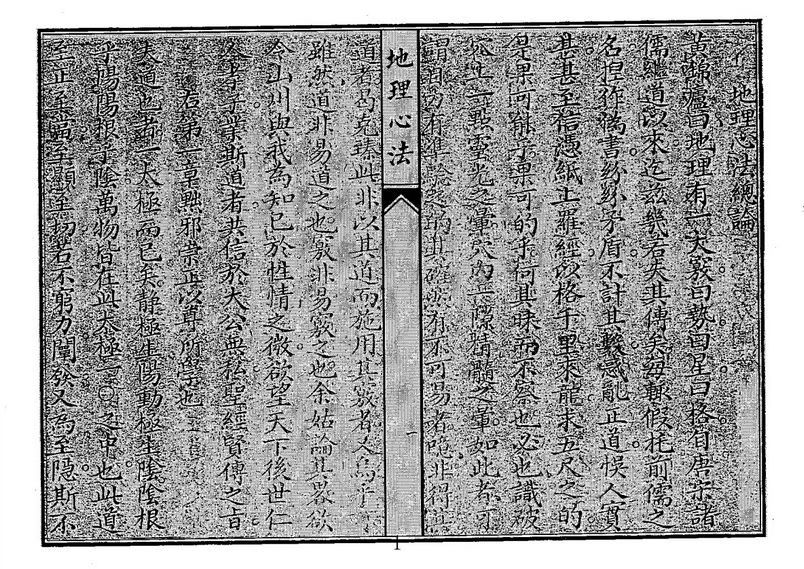 地理心法總論
黃歸爐曰地理有一大竅曰勢曰星曰格自唐宋諸
儒繼道以來迄茲幾若失其傳矣毎輒假托前儒之
名捏非偽書紛紛矛盾不計其數惑亂正道悞人實
甚甚至信憑紙上羅經以格千里來龍求五尺之的
是果可能乎果可的乎何其昧而不察也必也識破
此生一點靈光之暈穴內真髓精髓之暈如此者可
謂自有準驗之的其確然有不可易者噫非得真
道者曷克臻此非以其道而施用其竅者又烏乎
雖然道非易道之也竅非易竅之也余姑論其畧欲
令山川與我為知己於性情之微欲望天下後世仁
人孝子業斯道者共信於大公無私聖經賢傳之旨
右第一章黜邪崇正以尊所學也
夫道也者一太極而已矣靜極生陽動極生陰陰根
乎陽陽根乎陰萬物皆在此太極一〇之中也此道
至正至當至顯至初若不窮力闡發又為至隱斯不
地理心法
一
1